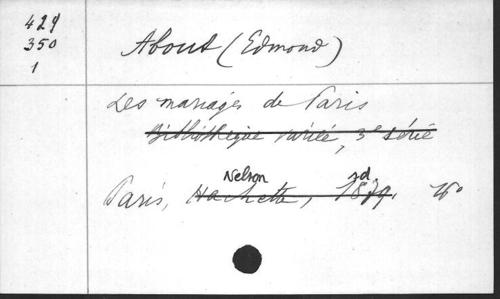 429
350
1
About (Edmond)
Les mariages de Paris
Bibliothèque variée, 3e série
Nelson
Paris, Hachette, 1879.